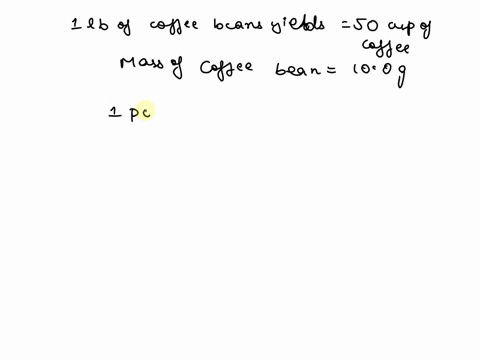 1 lb of coffee beans yields = 50 cup of
coffee
Mass of Coffee bean = 10.0 g
1 po